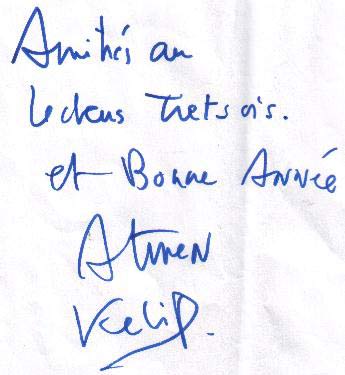 Amitiés au
lecteurs Tretsois.
et Bonne Année
Atmen
Kelif.